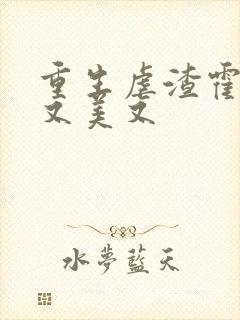 重生虐渣霍
又美又
水夢藍天